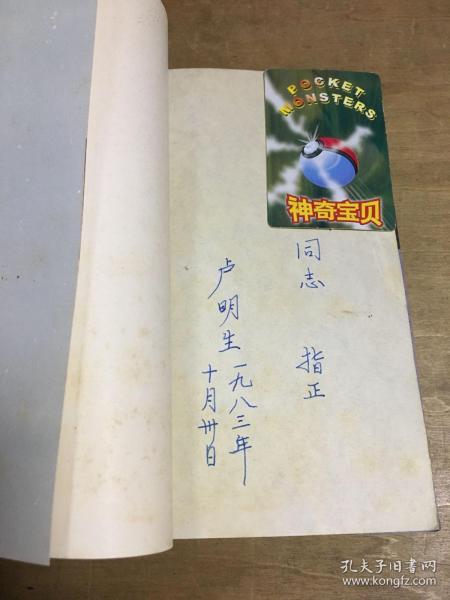 POCKET
MONSTERS
神奇宝贝
同志 指正
卢明生 一九八三年
十月卅日
孔夫子旧书网
www.kongfz.com